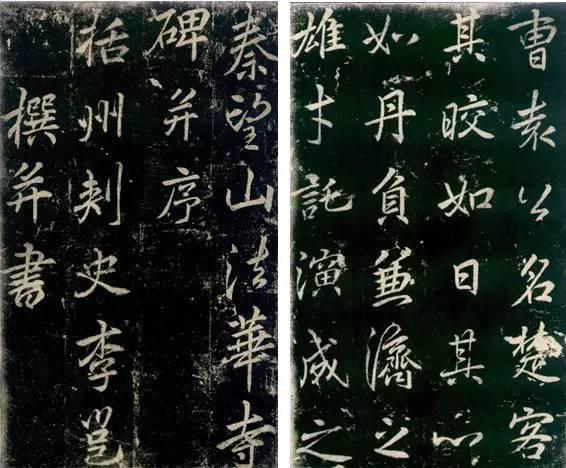 秦望山法華寺
碑并序
括州刺史李邕
撰并書
曹袁公名楚客
其晈如日其心
如丹負兼濟之
雄才託演成之